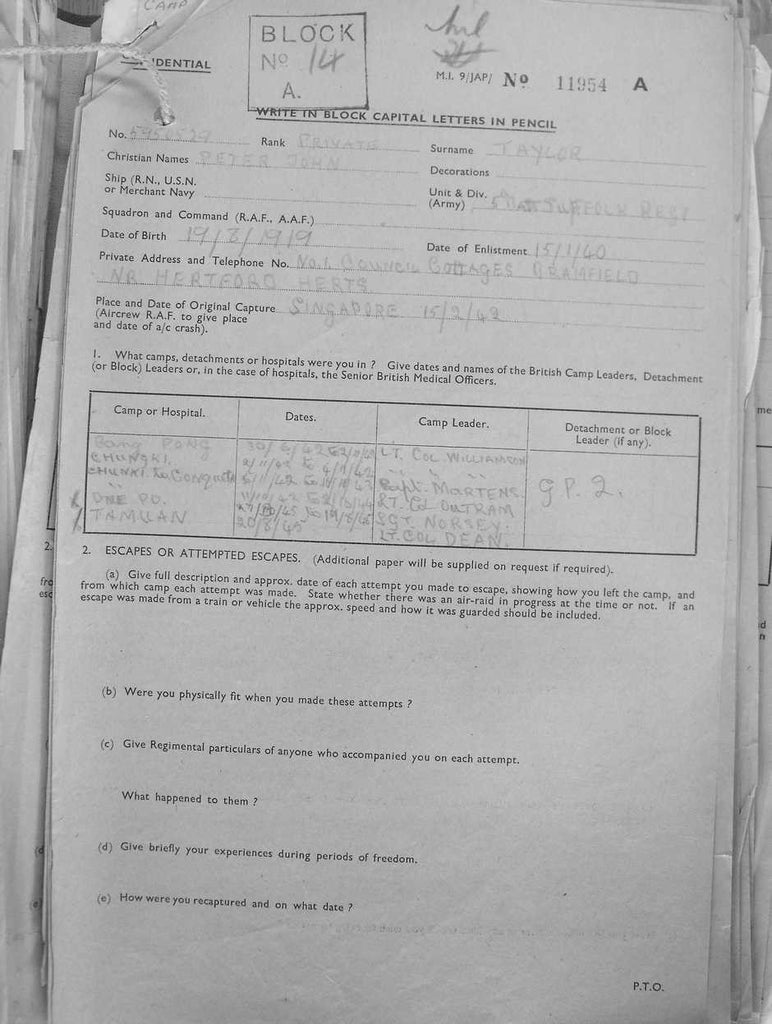 CAMP
BLOCK
No 14
A.
DENTIAL
M.I. 9/JAP/ No 11954 A
WRITE IN BLOCK CAPITAL LETTERS IN PENCIL
No. Rank PRIVATE Surname TAYLOR
Christian Names PETER JOHN Decorations
Ship (R.N., U.S.N.
or Merchant Navy Unit & Div.
(Army) SUFFOLK REGT
Squadron and Command (R.A.F., A.A.F.)
Date of Birth 19/8/1919 Date of Enlistment 15/1/40
Private Address and Telephone No. No.1. COUNCIL COTTAGES BRAMFIELD
NR HERTFORD HERTS
Place and Date of Original Capture SINGAPORE 15/2/42
(Aircrew R.A.F. to give place
and date of a/c crash).
1. What camps, detachments or hospitals were you in ? Give dates and names of the British Camp Leaders, Detachment
(or Block) Leaders or, in the case of hospitals, the Senior British Medical Officers.
Camp or Hospital. Dates. Camp Leader. Detachment or Block
Leader (if any).
BANG PONG LT. COL. WILLIAMSON
CHUNGKI.
CHUNKI to Capt. MARTENS.
LT. Col OUTRAM GP. 2.
TAMUAN SGT. NORSEY.
20/8/45 LT. COL DEAN.
2. ESCAPES OR ATTEMPTED ESCAPES. (Additional paper will be supplied on request if required).
(a) Give full description and approx. date of each attempt you made to escape, showing how you left the camp, and
from which camp each attempt was made. State whether there was an air-raid in progress at the time or not. If an
escape was made from a train or vehicle the approx. speed and how it was guarded should be included.
(b) Were you physically fit when you made these attempts ?
(c) Give Regimental particulars of anyone who accompanied you on each attempt.
What happened to them ?
(d) Give briefly your experiences during periods of freedom.
(e) How were you recaptured and on what date ?
P.T.O.